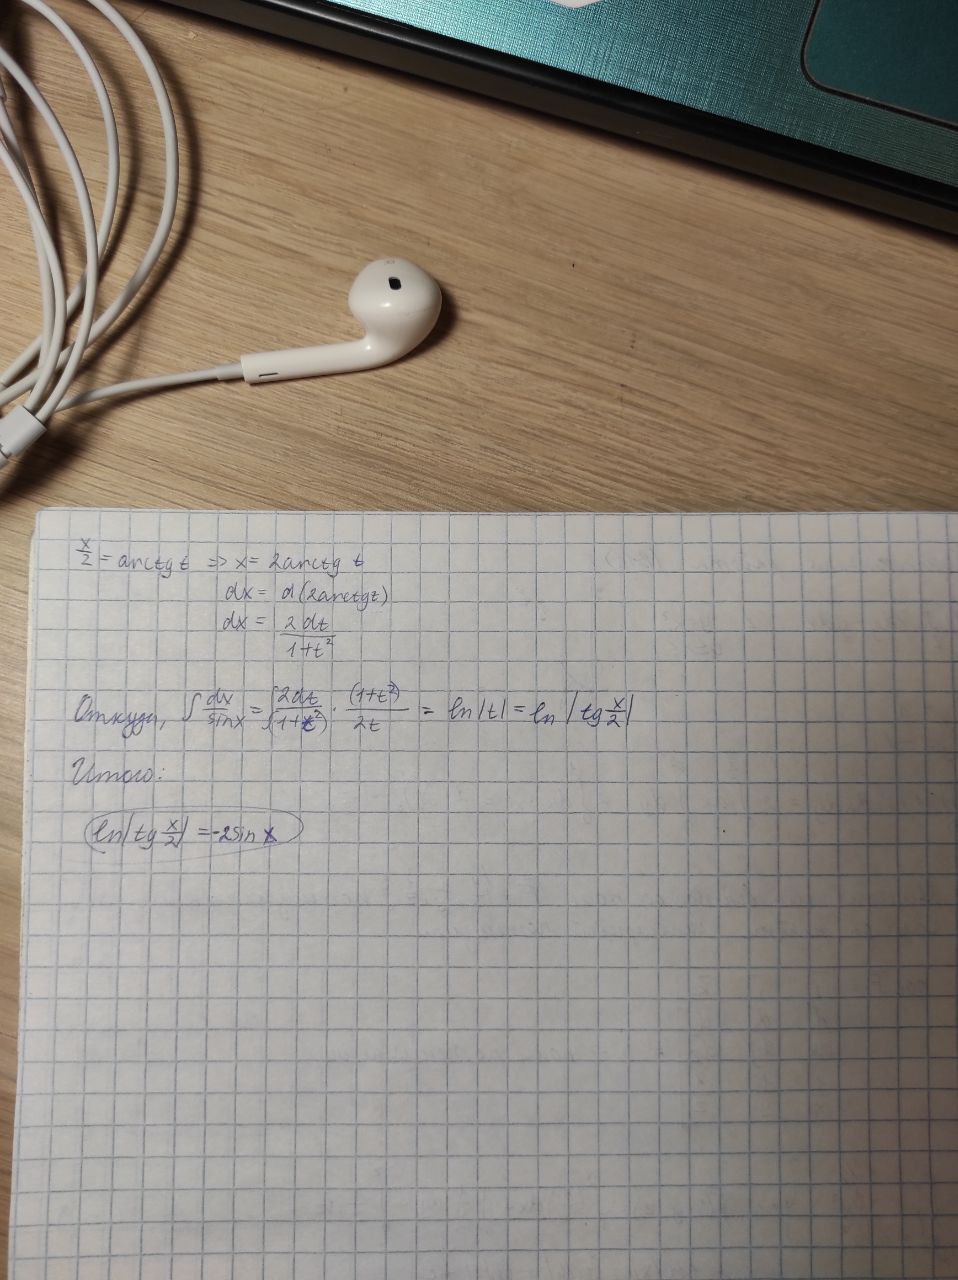 x/2 = arctg t => x = 2arctg t
dx = d(2arctgt)
dx = 2dt/(1+t²)
Откуда, ∫ dx/sinx = ∫ 2dt/(1+t²) · (1+t²)/2t = ln|t| = ln |tg x/2|
Итого:
ln|tg x/2| = -2sin x